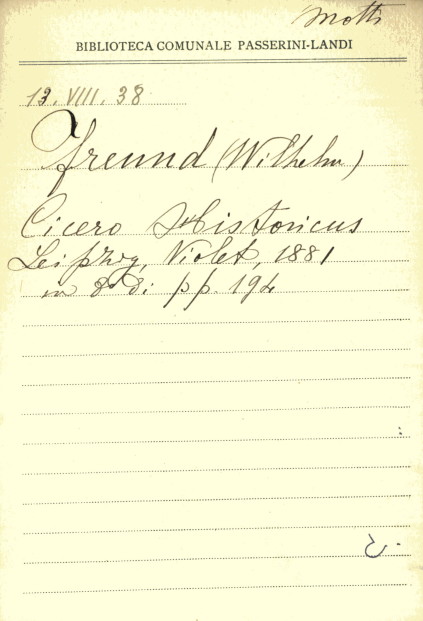 Motti
BIBLIOTECA COMUNALE PASSERINI-LANDI
13. VIII. 38
Freund (Wilhelm)
Cicero Historicus
Leipzig, Violet, 1881
in 8° di pp. 194